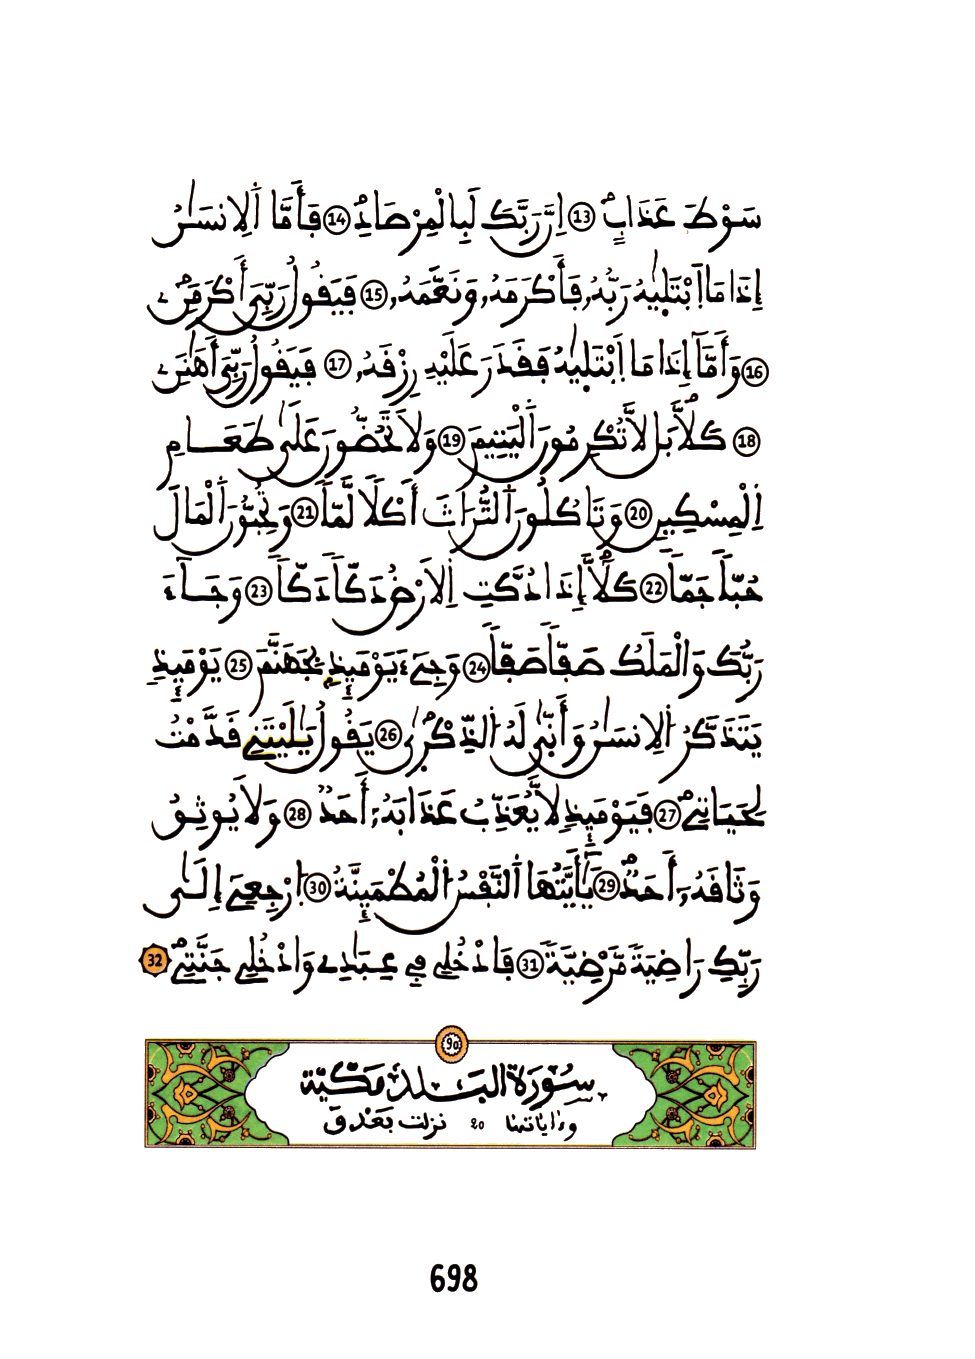 سَوْطَ عَذَابٍ ⑬ اِنَّ رَبَّكَ لَبِالْمِرْصَادِ ⑭ فَأَمَّا اَلِانسَٰنُ
إِذَا مَا اَبْتَلَيٰهُ رَبُّهُۥ فَأَكْرَمَهُۥ وَنَعَّمَهُۥ ⑮ فَيَقُولُ رَبِّيَ أَكْرَمَنِۦ
⑯ وَأَمَّآ إِذَا مَا اَبْتَلَيٰهُ فَقَدَرَ عَلَيْهِ رِزْقَهُۥ ⑰ فَيَقُولُ رَبِّيَ أَهَٰنَنِۦ
⑱ كَلَّا بَل لَّا تُكْرِمُونَ اَلْيَتِيمَ ⑲ وَلَا تَحُضُّونَ عَلَىٰ طَعَامِ
اِلْمِسْكِينِ ⑳ وَتَاكُلُونَ اَلتُّرَاثَ أَكْلًا لَّمًّا ㉑ وَتُحِبُّونَ اَلْمَالَ
حُبًّا جَمًّا ㉒ كَلَّآ إِذَا دُكَّتِ اِلَارْضُ دَكًّا دَكًّا ㉓ وَجَآءَ
رَبُّكَ وَالْمَلَكُ صَفًّا صَفًّا ㉔ وَجِےٓءَ يَوْمَئِذٍۭ بِجَهَنَّمَ ㉕ يَوْمَئِذٍ
يَتَذَكَّرُ اُلِانسَٰنُ وَأَنّٰىٰ لَهُ اُلذِّكْر۪ىٰ ㉖ يَقُولُ يَٰلَيْتَنِے قَدَّمْتُ
لِحَيَاتِے ㉗ فَيَوْمَئِذٍ لَّا يُعَذِّبُ عَذَابَهُۥٓ أَحَدٌ ㉘ وَلَا يُوثِقُ
وَثَاقَهُۥٓ أَحَدٌ ㉙ يَٰٓأَيَّتُهَا اَلنَّفْسُ اُلْمُطْمَئِنَّةُ ㉚ اُرْجِعِےٓ إِلَىٰ
رَبِّكِ رَاضِيَةً مَّرْضِيَّةً ㉛ فَادْخُلِے فِے عِبَٰدِے وَادْخُلِے جَنَّتِے ㉜
90
سُورَةُ البَلَدِ مَكِّيَّة
وءاياتها 20 نزلت بَعْدَ ق
698